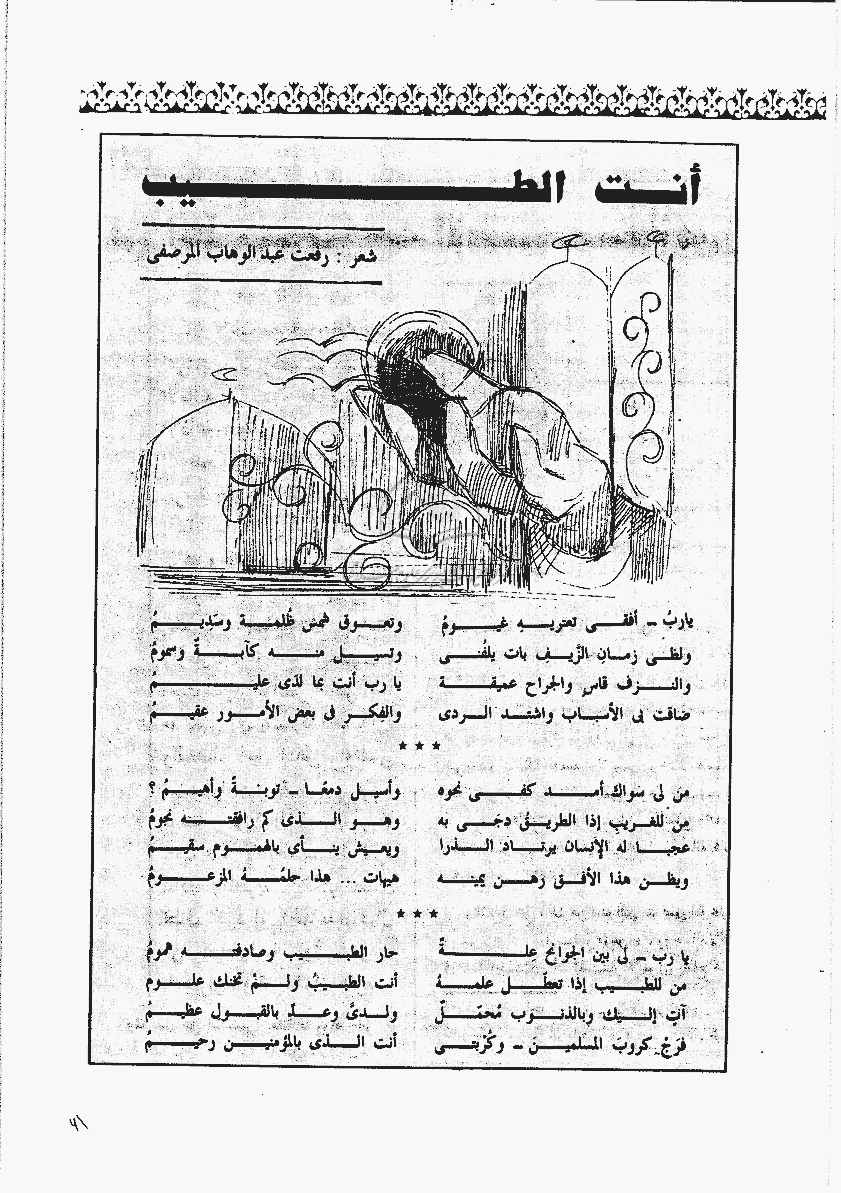 أنت الطيب
شعر : رفعت عبد الوهاب المرصفى
يارب - أفقى تعتريه غيوم وتعوق شمسى ظلمة وسديم
ولظى زمان الزيف بات يلفنى وتسيل منه كآبة وسموم
والنزف قاس والجراح عميقة يا رب أنت بما لدى عليم
ضاقت بى الأسباب واشتد الردى والفكر فى بعض الأمور عقيم
★ ★ ★
من لى سواك أمد كفى نحوه وأسيل دمعا - توبة وأهيم ؟
من للغريب إذا الطريق دجى به وهو الذى كم رافقته نجوم
عجبا له الإنسان يرتاد الذرا ويعيش ينأى بالهموم سقيم
ويظن هذا الأفق رهن يمينه هيهات ... هذا حلمه المزعوم
★ ★ ★
يا رب - لى بين الجوانح علة حار الطبيب وصادفته هموم
من للطبيب إذا تعطل علمه أنت الطبيب ولم تخنك علوم
آت إليك وبالذنوب محمل ولدى وعد بالقبول عظيم
فرج كروب المسلمين - وكربتى أنت الذى بالمؤمنين رحيم